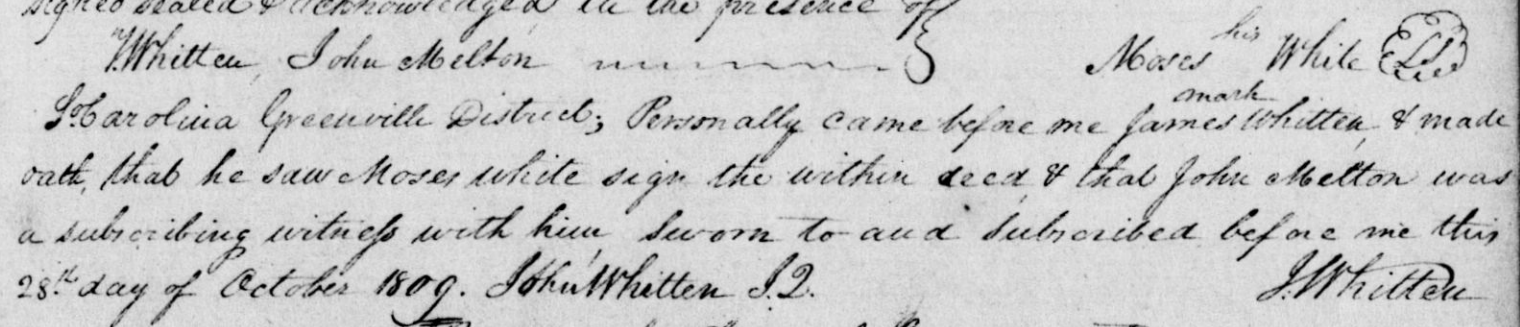 signed sealed & acknowledged in the presence of
J. Whitten, John Melton } Moses his White (LS)
mark
So. Carolina Greenville District; Personally came before me James Whitten, & made
oath, that he saw Moses white sign the within deed & that John Melton was
a subscribing witness with him, sworn to and subscribed before me this
28th day of October 1809. John Whitten J.Q. J. Whitten